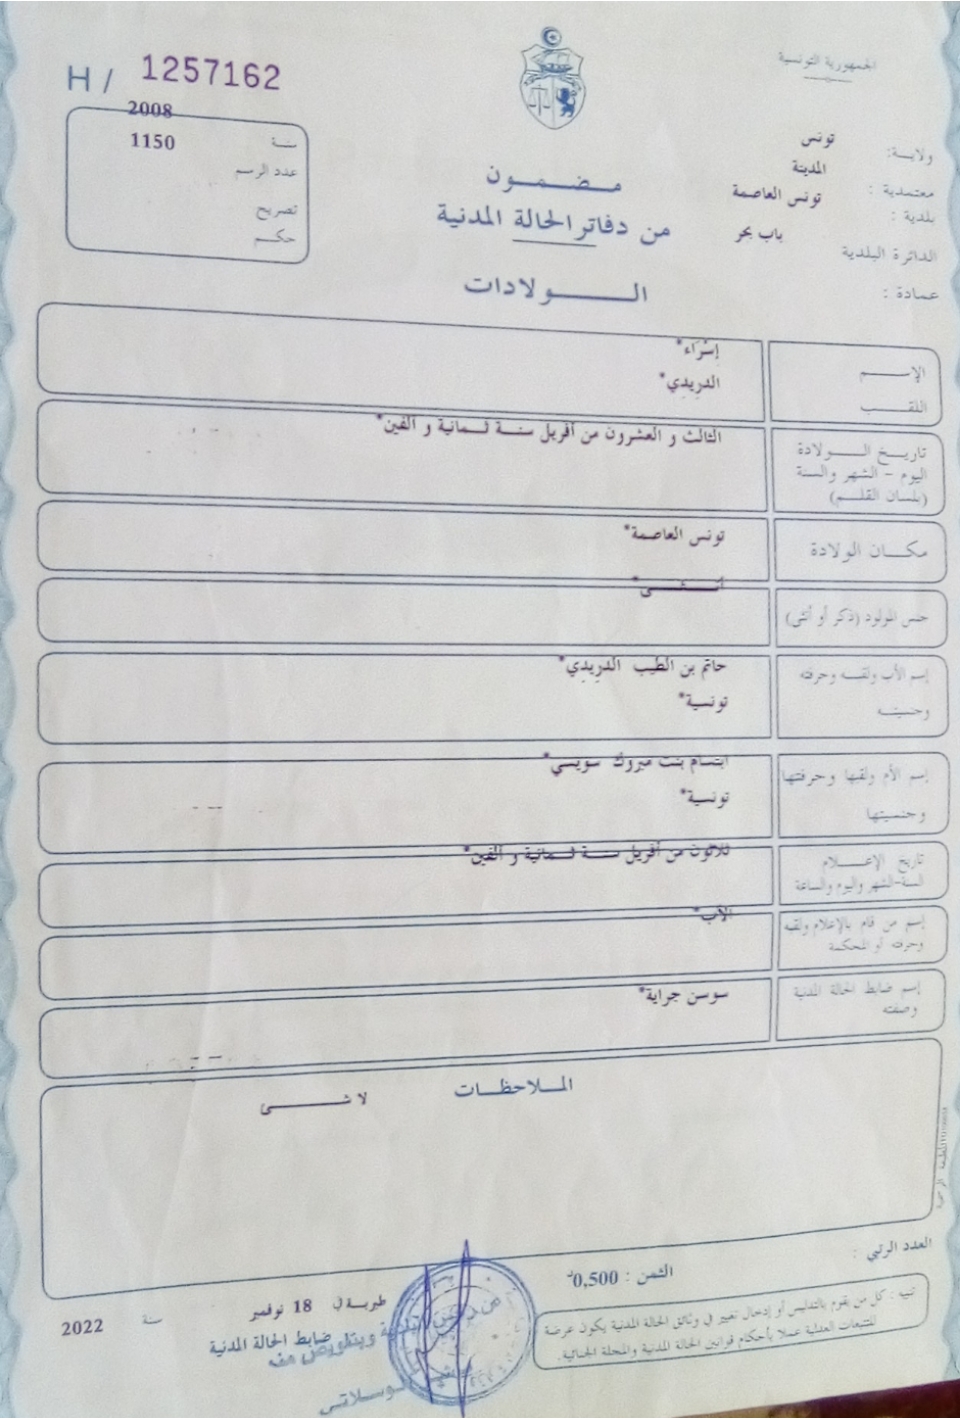 الجمهورية التونسية
H / 1257162
ولايــة: تونس
معتمدية : المدينة
بلدية : تونس العاصمة
الدائرة البلدية باب بحر
عمادة :
سنــة 2008
عدد الرسم 1150
تصريح
حكــم
مــضــمــون
من دفاتر الحالة المدنية
الــــولادات
الإســـم إسْرَاء*
اللقــب الدريدي*
تاريــخ الــــولادة
اليوم - الشهر والسنة
(بلسان القلــم)
الثالث و العشرون من أفريل سنــة ثــمانية و ألفين*
مكــان الولادة تونس العاصمة*
جنس المولود (ذكر أو أنثى) أنــثــى*
إسم الأب ولقبــه وحرفته حاتم بن الطيب الدريدي*
وجنسيتــه تونسية*
إسم الأم ولقبها وحرفتها ابتسام بنت مبروك سويسي*
وجنسيتها تونسية*
تاريخ الإعــــلام
السنة-الشهر واليوم والساعة
ثلاثون من أفريل سنــة ثــمانية و ألفين*
إسم من قام بالإعلام ولقبه
وحرفته أو المحكمة
الأب*
إسم ضابط الحالة المدنية
وصفته
سوسن جراية*
المــلاحظــات
لا شــــئ
العدد الرتبي :
الثمن : 0,500د
تنبيه : كل من يقوم بالتدليس أو إدخال تغيير في وثائق الحالة المدنية يكون عرضة
للتتبعات العدلية عملا بأحكام قوانين الحالة المدنية والمجلة الجنائية.
طبربــة في 18 نوفمبر سنة 2022
ضابط الحالة المدنية
وبتفويض منه